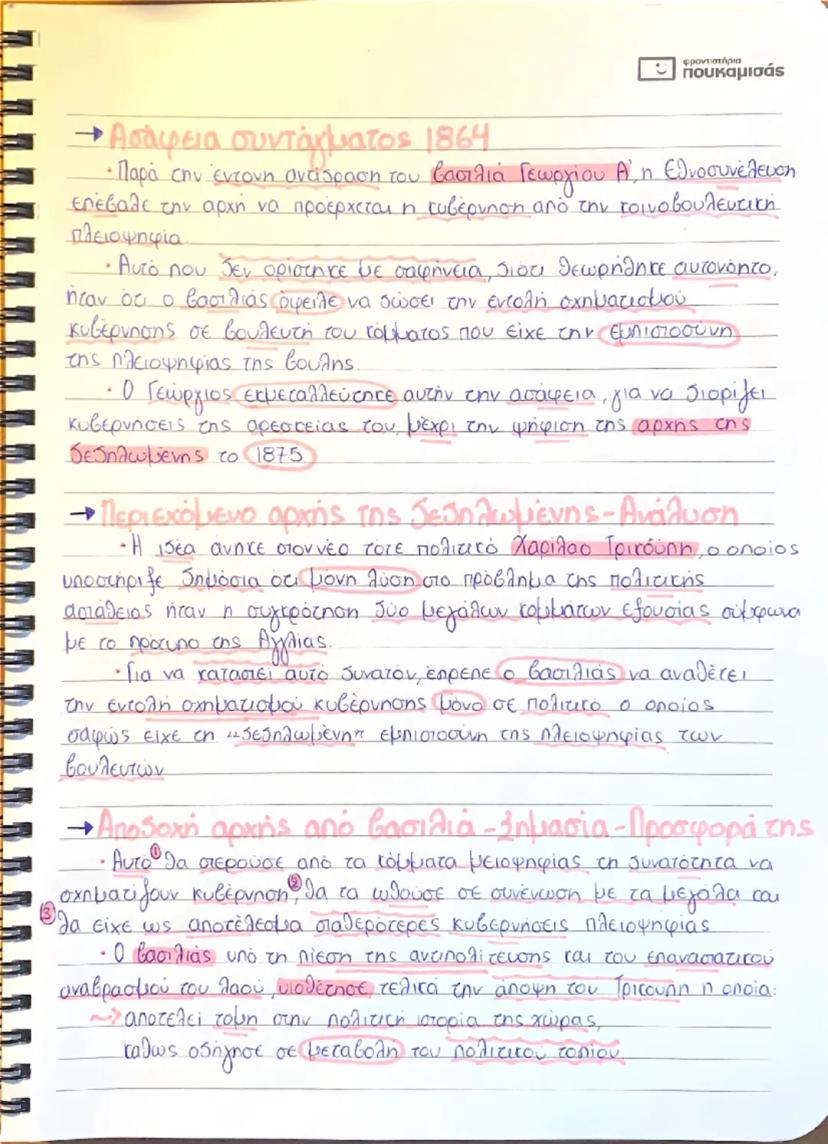 φροντιστήρια
πουκαμισάς
→ Ασάφεια συντάγματος 1864
· Παρά την έντονη αντίδραση του βασιλιά Γεωργίου Α', η Εθνοσυνέλευση
επέβαλε την αρχή να προέρχεται η κυβέρνηση από την κοινοβουλευτική
πλειοψηφία
· Αυτό που δεν ορίστηκε με σαφήνεια, διότι θεωρήθηκε αυτονόητο,
ήταν ότι ο βασιλιάς όφειλε να δώσει την εντολή σχηματισμού
κυβέρνησης σε βουλευτή του κόμματος που είχε την εμπιστοσύνη
της πλειοψηφίας της βουλής.
· Ο Γεώργιος εκμεταλλεύτηκε αυτήν την ασάφεια, για να διορίζει
κυβερνήσεις της αρεσκείας του, μέχρι την ψήφιση της αρχής της
δεδηλωμένης το 1875
→ Περιεχόμενο αρχής της δεδηλωμένης - Ανάλυση
· Η ιδέα άνηκε στον νέο τότε πολιτικό Χαρίλαο Τρικούπη, ο οποίος
υποστήριξε δημόσια ότι μόνη λύση στο πρόβλημα της πολιτικής
αστάθειας ήταν η συγκρότηση δύο μεγάλων κομμάτων εξουσίας σύμφωνα
με το πρότυπο της Αγγλίας.
· Για να καταστεί αυτό δυνατόν, έπρεπε ο βασιλιάς να αναθέτει
την εντολή σχηματισμού κυβέρνησης μόνο σε πολιτικό ο οποίος
σαφώς είχε τη «δεδηλωμένη» εμπιστοσύνη της πλειοψηφίας των
βουλευτών
→ Αποδοχή αρχής από βασιλιά - Σημασία - Προσφορά της
· Αυτό ① θα στερούσε από τα κόμματα μειοψηφίας τη δυνατότητα να
σχηματίζουν κυβέρνηση, ② θα τα ωθούσε σε συνένωση με τα μεγάλα και
③ θα είχε ως αποτέλεσμα σταθερότερες κυβερνήσεις πλειοψηφίας
· Ο βασιλιάς υπό τη πίεση της αντιπολίτευσης και του επαναστατικού
αναβρασμού του λαού, υιοθέτησε τελικά την άποψη του Τρικούπη η οποία:
~> αποτελεί τομή στην πολιτική ιστορία της χώρας,
καθώς οδήγησε σε μεταβολή του πολιτικού τοπίου